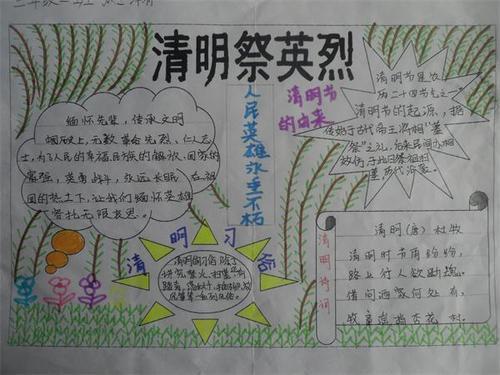 清明祭英烈
缅怀先辈，传承文明
烟硝史上，无数革命先烈、仁人志
士，为了人民的幸福民族的解放、国家的
富强，英勇战斗，永远长眠在祖
国的热土下，让我们缅怀英雄
寄托无限哀思。
人民英雄永垂不朽
清明节
的由来
清明节是农
历二十四节气之一
清明节的起源，据
传始于古代帝王将相“墓
祭”之礼，后来民间亦相
仿效，于此日祭祖扫
墓，历代沿袭
清明习俗
清明的习俗除了
讲究禁火、扫墓，还有
踏青、荡秋千、
风筝等一系列风俗。
清明诗词
清明（唐）杜牧
清明时节雨纷纷，
路上行人欲断魂。
借问酒家何处有，
牧童遥指杏花村。